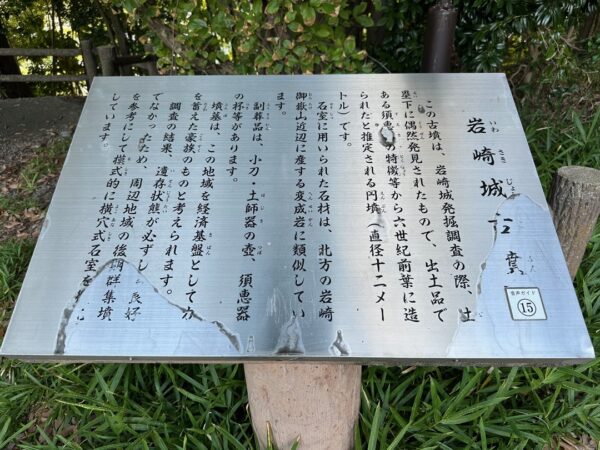 岩崎城古墳
この古墳は、岩崎城発掘調査の際、土
塁下に偶然発見されたもので、出土品で
ある須恵の特徴等から六世紀前葉に造
られたと推定される円墳(直径十二メー
トル)です。
石室に用いられた石材は、北方の岩崎
御嶽山近辺に産する変成岩に類似してい
ます。
副葬品は、小刀・土師器の壺、須恵器
の杯等があります。
墳墓は、この地域を経済基盤として力
を蓄えた豪族のものと考えられます。
調査の結果、遺存状態が必ずし良好
でなため、周辺地域の後期群集墳
を参考にして模式的に横穴式石室を
しています。
音声ガイド
⑮